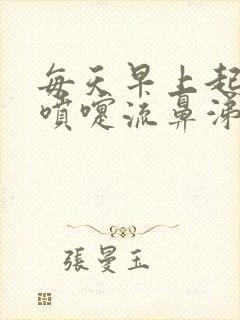 每天早上起
噴嚏流鼻涕
張曼玉